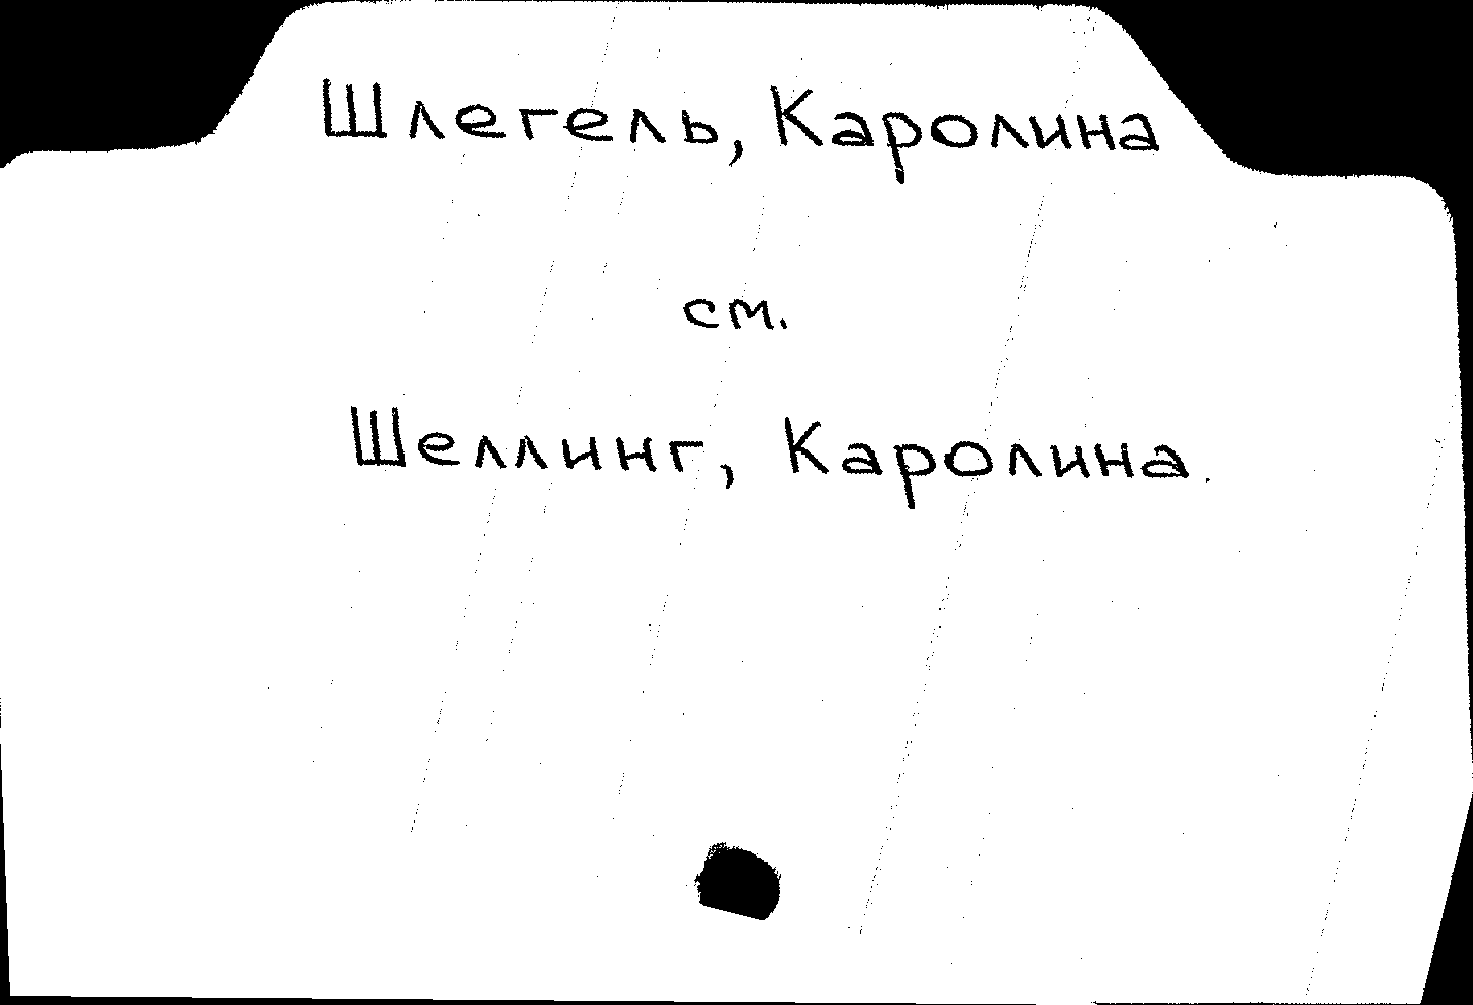 Шлегель, Каролина
см.
Шеллинг, Каролина.